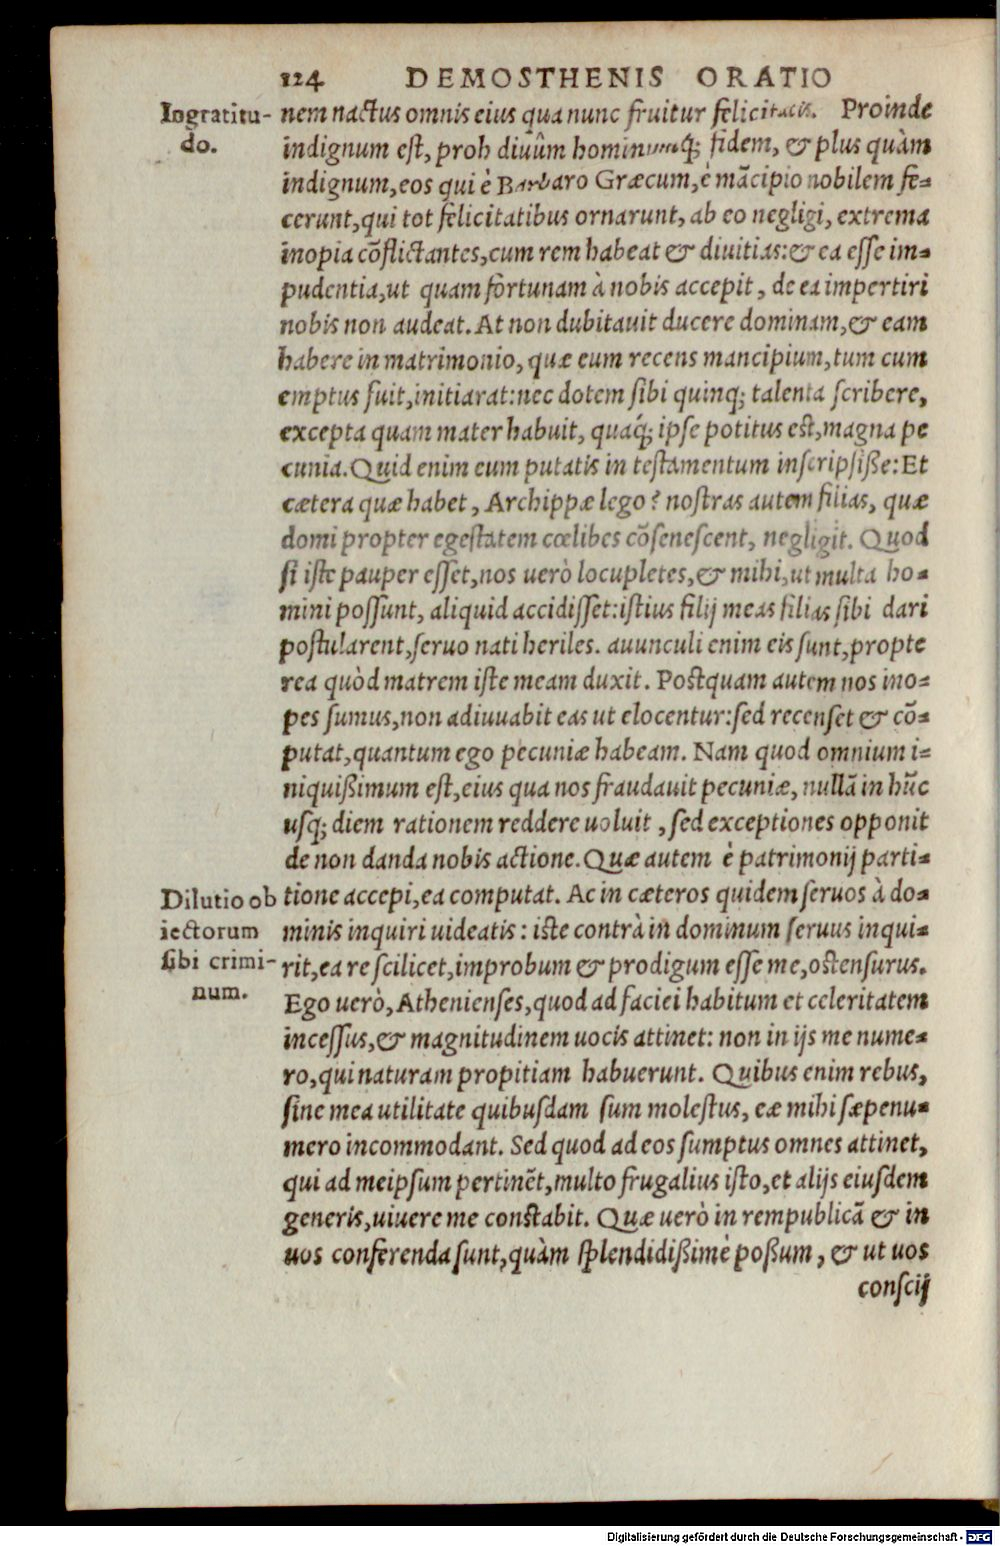 124 DEMOSTHENIS ORATIO
Ingratitu-
do.
nem nactus omnis eius qua nunc fruitur felicitatis. Proinde
indignum est, proh diuûm hominumq́; fidem, & plus quàm
indignum, eos qui è Barbaro Græcum, è mācipio nobilem fe-
cerunt, qui tot felicitatibus ornarunt, ab eo negligi, extrema
inopia cōflictantes, cum rem habeat & diuitias: & ea esse im-
pudentia, ut quam fortunam à nobis accepit, de ea impertiri
nobis non audeat. At non dubitauit ducere dominam, & eam
habere in matrimonio, quæ eum recens mancipium, tum cum
emptus fuit, initiarat: nec dotem sibi quinq; talenta scribere,
excepta quam mater habuit, quaq́; ipse potitus est, magna pe
cunia. Quid enim eum putatis in testamentum inscripsiße: Et
cætera quæ habet, Archippæ lego? nostras autem filias, quæ
domi propter egestatem cœlibes cōsenescent, negligit. Quod
si iste pauper esset, nos uerò locupletes, & mihi, ut multa ho-
mini possunt, aliquid accidisset: istius filij meas filias sibi dari
postularent, seruo nati heriles. auunculi enim eis sunt, propte
rea quòd matrem iste meam duxit. Postquam autem nos ino-
pes sumus, non adiuuabit eas ut elocentur: sed recenset & cō-
putat, quantum ego pecuniæ habeam. Nam quod omnium i-
niquißimum est, eius qua nos fraudauit pecuniæ, nullā in hūc
usq; diem rationem reddere uoluit, sed exceptiones opponit
de non danda nobis actione. Quæ autem è patrimonij parti-
Dilutio ob
iectorum
sibi crimi-
num.
tione accepi, ea computat. Ac in cæteros quidem seruos à do-
minis inquiri uideatis: iste contrà in dominum seruus inqui-
rit, ea re scilicet, improbum & prodigum esse me, ostensurus.
Ego uerò, Athenienses, quod ad faciei habitum et celeritatem
incessus, & magnitudinem uocis attinet: non in ijs me nume-
ro, qui naturam propitiam habuerunt. Quibus enim rebus,
sine mea utilitate quibusdam sum molestus, eæ mihi sæpenu-
mero incommodant. Sed quod ad eos sumptus omnes attinet,
qui ad meipsum pertinēt, multo frugalius isto, et alijs eiusdem
generis, uiuere me constabit. Quæ uerò in rempublicā & in
uos conferenda sunt, quàm splendidißimè poßum, & ut uos
conscij
Digitalisierung gefördert durch die Deutsche Forschungsgemeinschaft - DFG